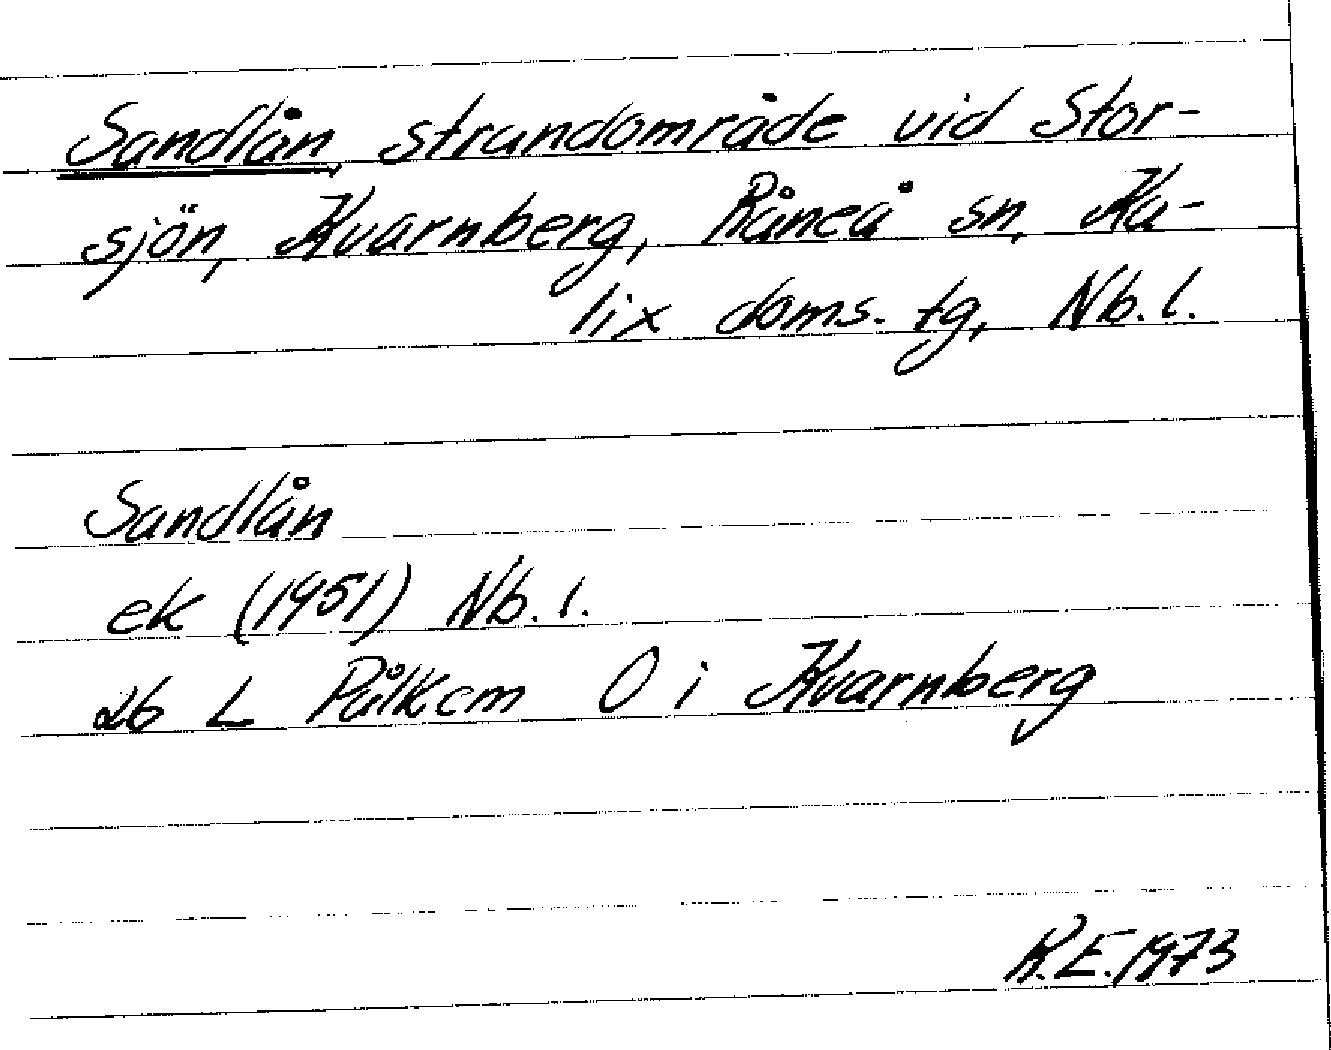 Sandlån, strandområde vid Stor-
sjön, Kvarnberg, Råneå sn, Ka-
lix doms. tg, Nb. l.
Sandlån
ek (1951) Nb. l.
26 L Pålkem O i Kvarnberg
R.E. 1973